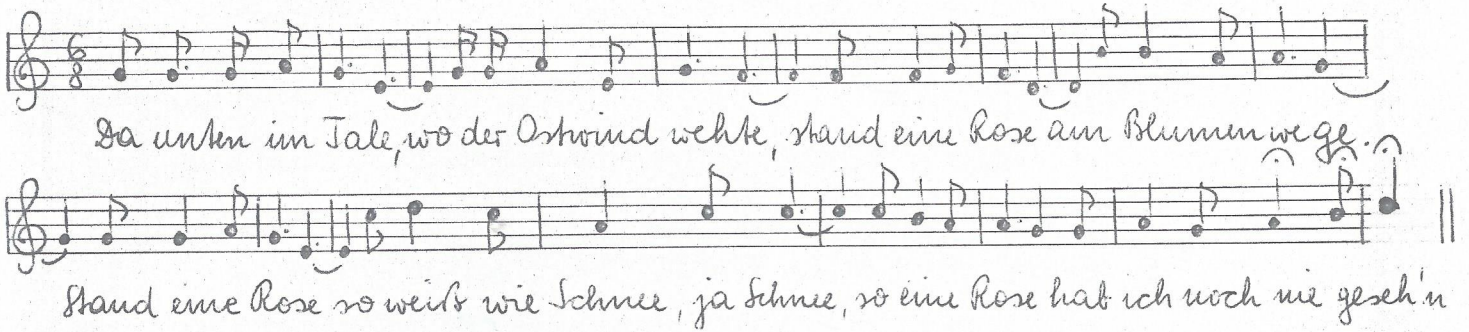 6
8
Da unten im Tale, wo der Ostwind wehte, stand eine Rose am Blumenwege.
Stand eine Rose so weiß wie Schnee, ja Schnee, so eine Rose hab ich noch nie geseh'n